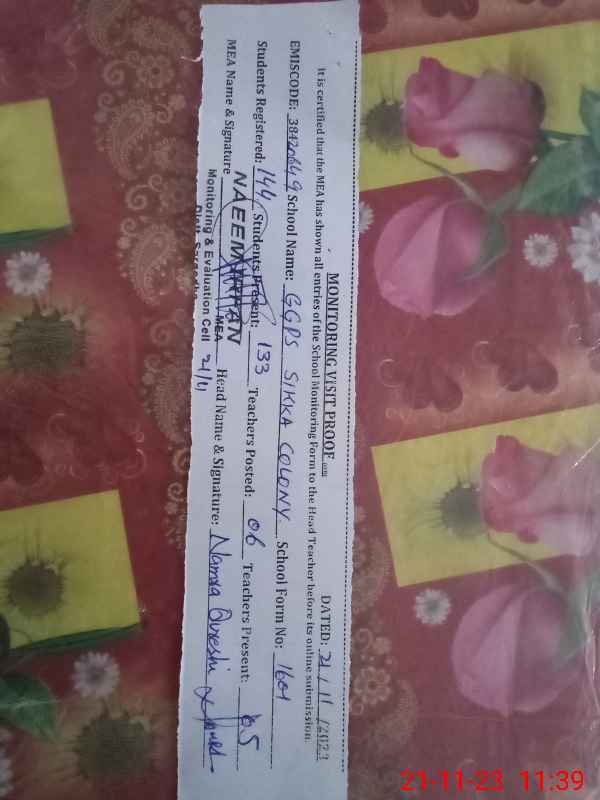 MONITORING VISIT PROOF DATED: 21/11/2023
It is certified that the MEA has shown all entries of the School Monitoring Form to the Head Teacher before its online submission.
EMISCODE: 38420649 School Name: GGPS SIKKA COLONY School Form No: 1601
Students Registered: 144 Students Present: 133 Teachers Posted: 06 Teachers Present: 05
MEA Name & Signature NAEEM Head Name & Signature: Namra Qureshi
MEA
Monitoring & Evaluation Cell 21/11
21-11-23 11:39